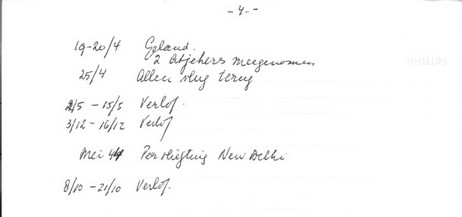 - 4 - -
19-20/4 Geland.
2 Atjehers meegenomen
25/4 Allen vlug terug
2/5 - 15/5 Verlof.
3/12 - 16/12 Verlof
Mei 44 Per vliegtuig New Delhi
8/10 - 21/10 Verlof.
PHILIPS